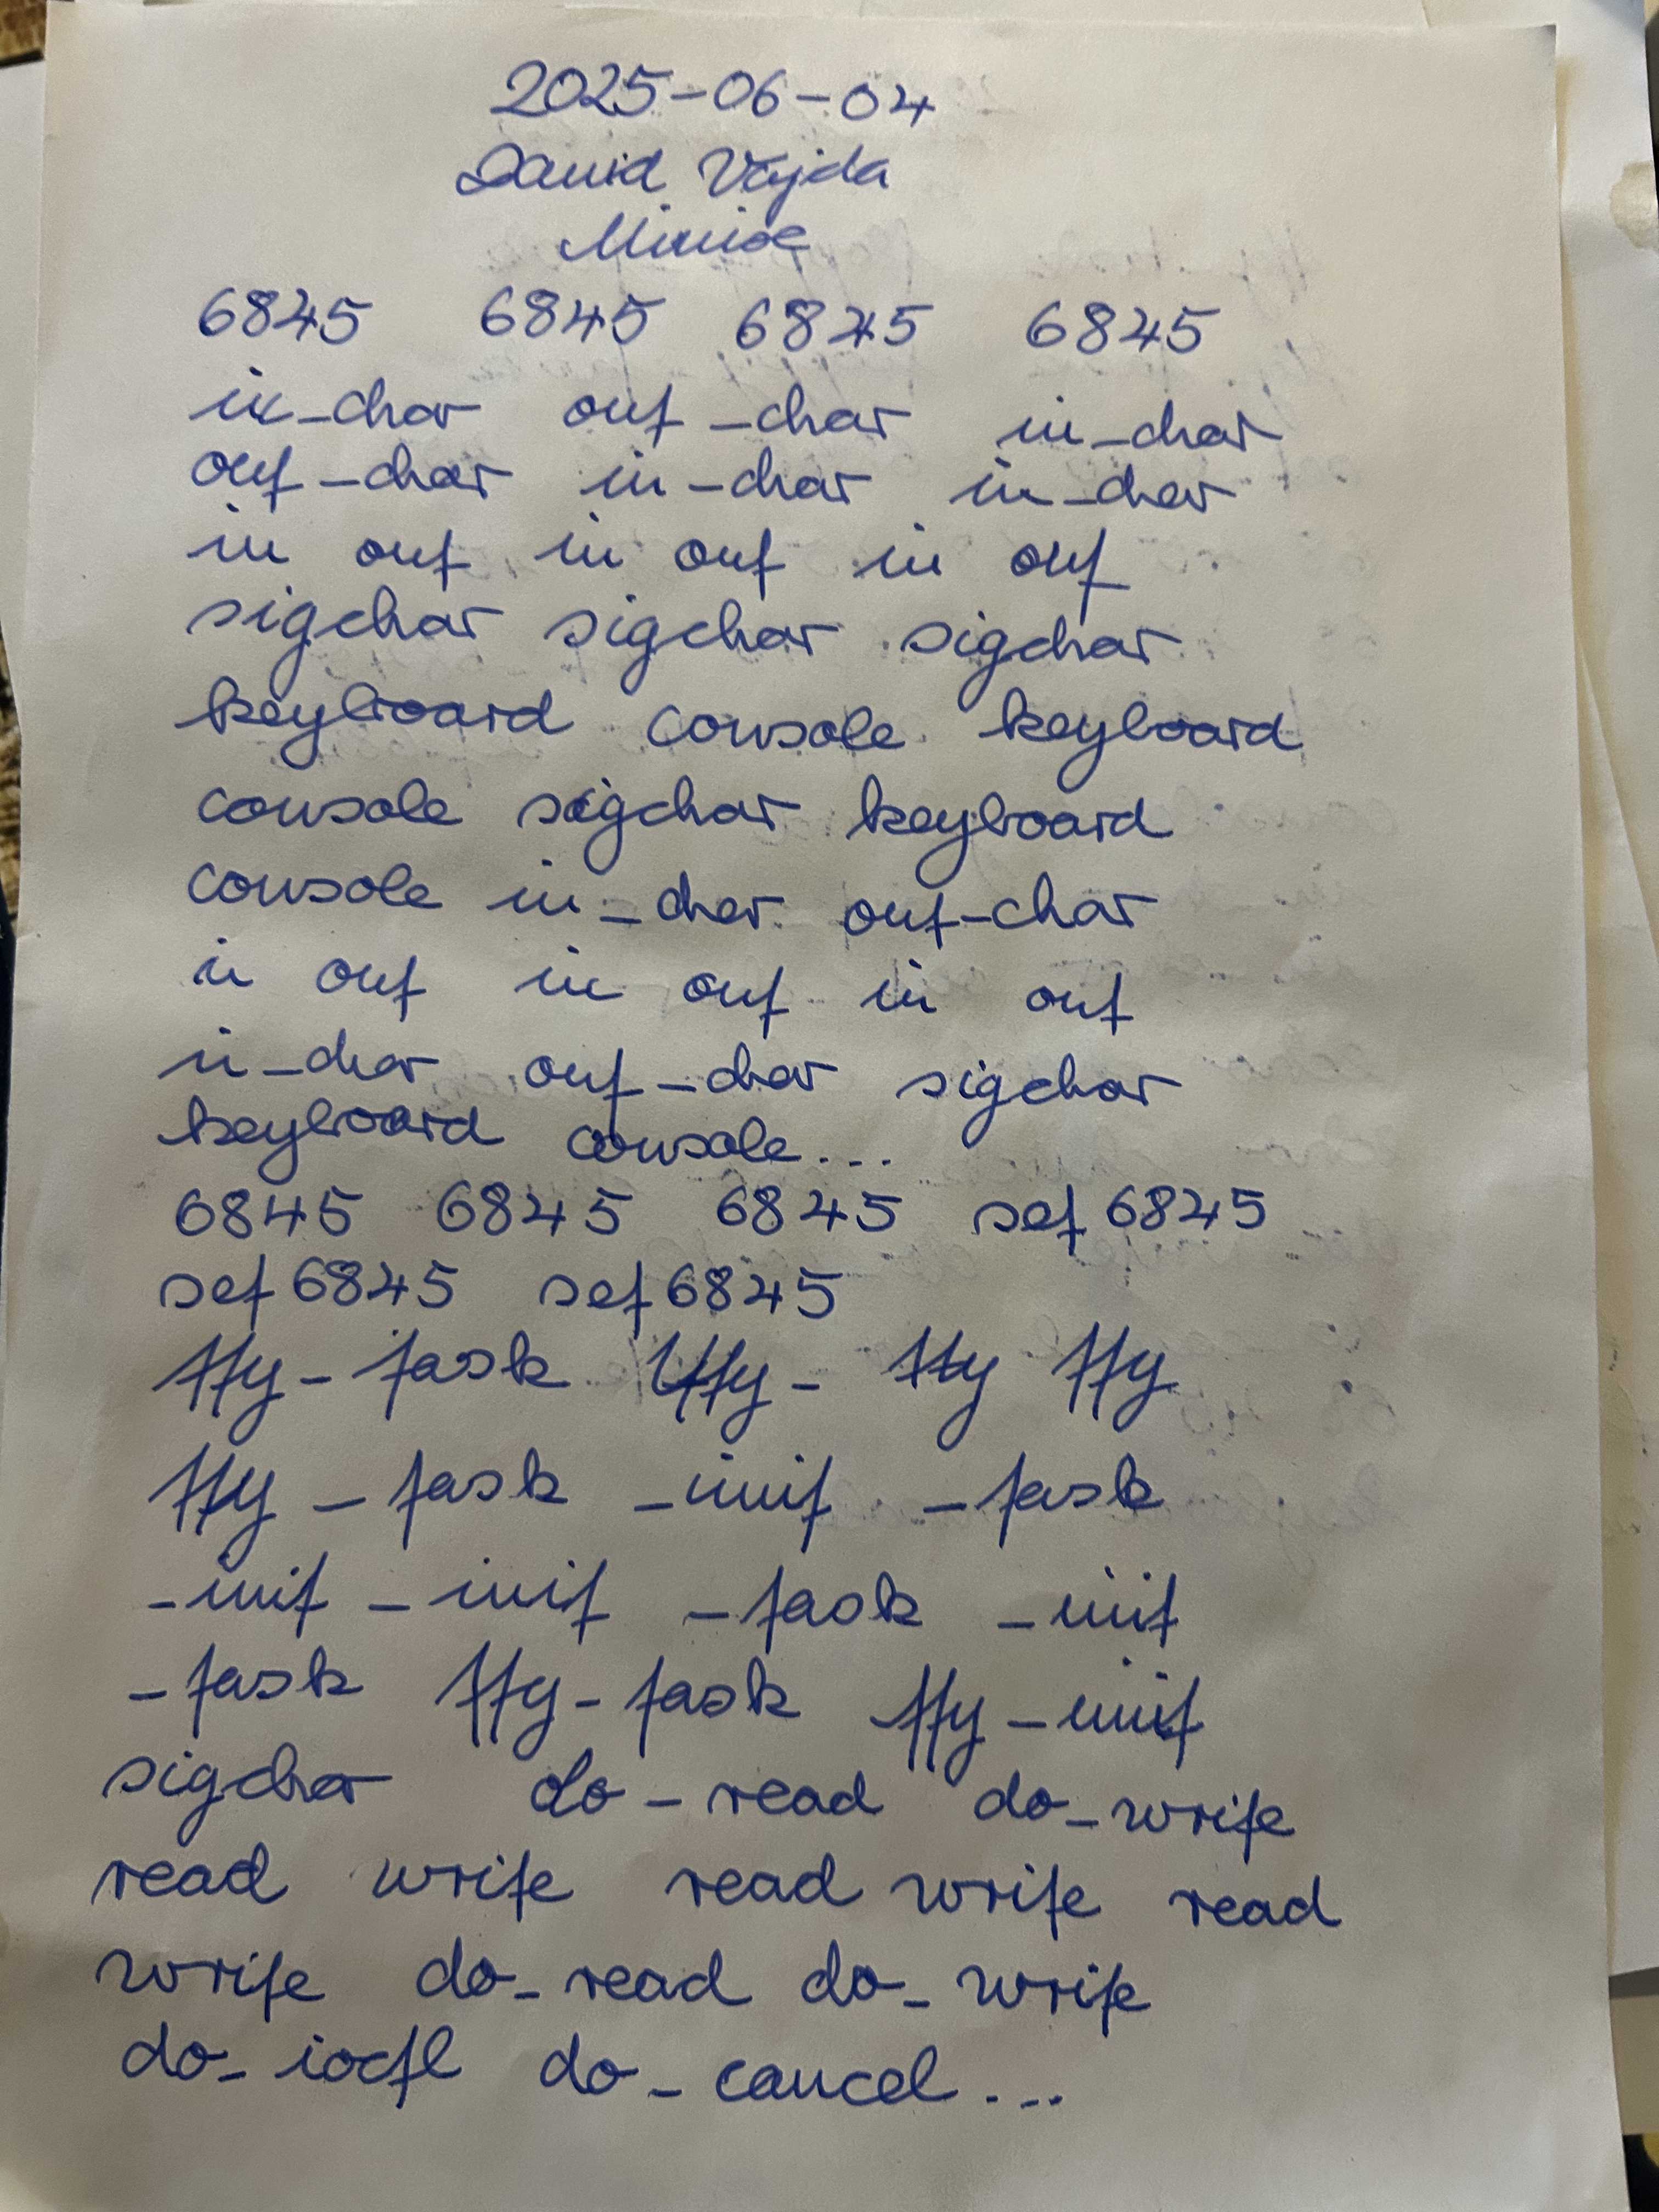 2025-06-04
David Vajda
Minix
6845 6845 6845 6845
in_char out_char in_char
out_char in_char in_char
in out in out in out
sigchar sigchar sigchar
keyboard console keyboard
console sigchar keyboard
console in_char out_char
in out in out in out
in_char out_char sigchar
keyboard console...
6845 6845 6845 set 6845
set 6845 set 6845
tty_task tty_ tty tty
tty_task _init _task
_init _init _task _init
_task tty_task tty_init
sigchar do_read do_write
read write read write read
write do_read do_write
do_ioctl do_cancel...